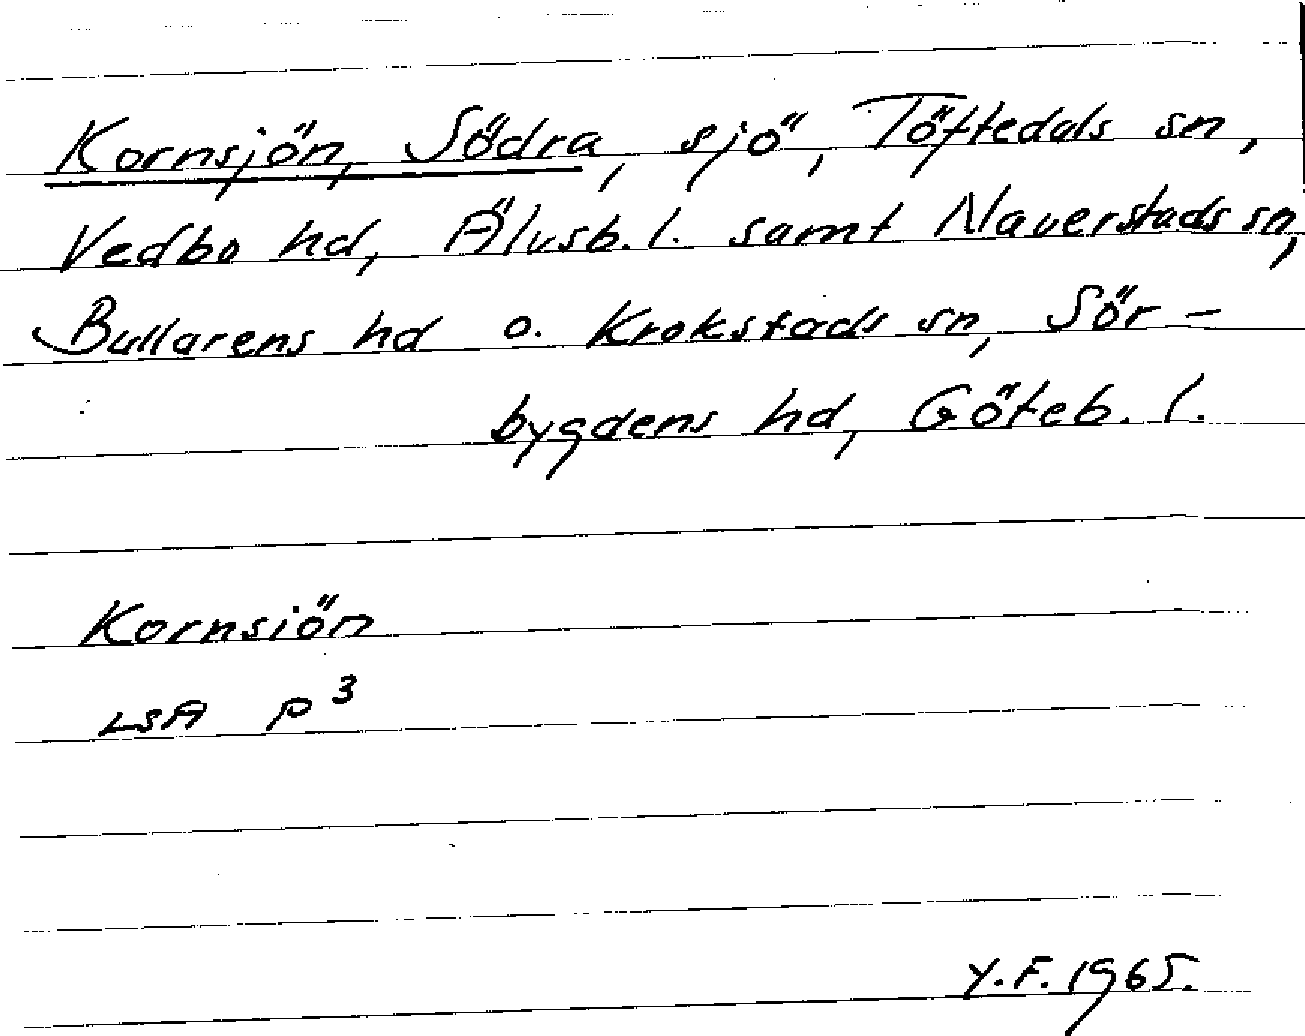 Kornsjön, Södra, sjö, Töftedals sn,
Vedbo hd, Älvsb. l. samt Naverstads sn,
Bullarens hd o. Krokstads sn, Sör-
bygdens hd, Göteb. l.
Kornsiön
LSA P3
Y.F. 1965.